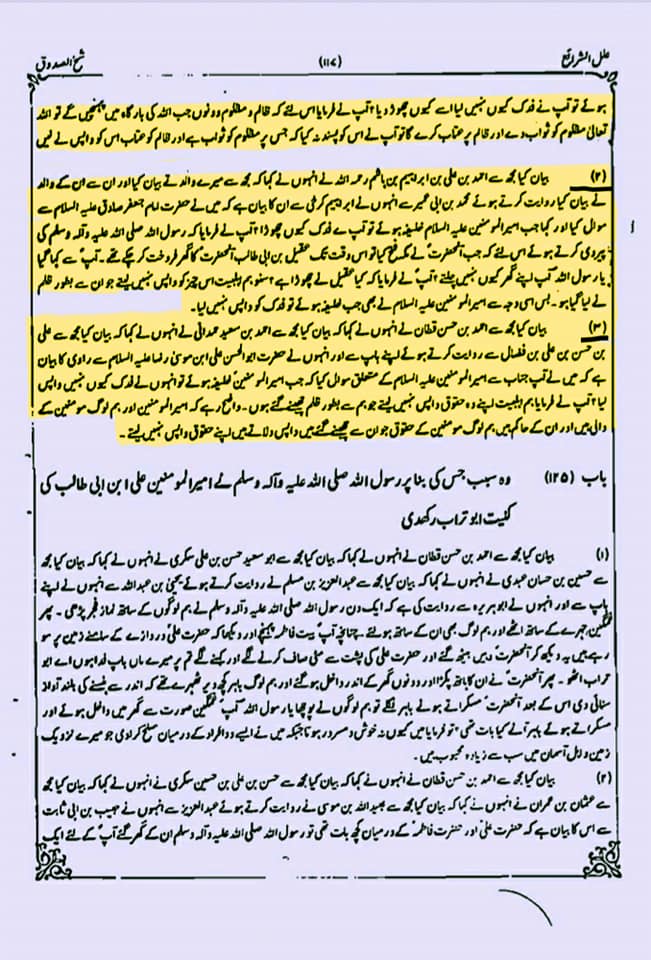 علل الشرائع (۱۱۷) شیخ الصدوق
ہوئے تو آپ نے فدک کیوں نہیں لیا اسے کیوں چھوڑ دیا؟ آپ نے فرمایا اس لئے کہ ظالم و مظلوم دونوں جب اللہ کی بارگاہ میں پہنچیں گے تو اللہ
تعالیٰ مظلوم کو ثواب دے اور ظالم پر عتاب کرے گا تو آپ نے اس کو پسند نہ کیا کہ جس پر مظلوم کو ثواب ہے اور ظالم کو عتاب اس کو واپس لے لیں
(۲) بیان کیا مجھ سے احمد بن علی بن ابراہیم بن ہاشم رحمہ اللہ نے انہوں نے کہا کہ مجھ سے میرے والد نے بیان کیا اور ان سے ان کے والد
نے بیان کیا روایت کرتے ہوئے محمد بن ابی عمیر سے انہوں نے ابراہیم کرخی سے ان کا بیان ہے کہ میں نے حضرت امام جعفر صادق علیہ السلام سے
سوال کیا اور کہا جب امیر المومنین علیہ السلام خلیفہ ہوئے تو آپ نے فدک کیوں چھوڑا؟ آپ نے فرمایا کہ رسول اللہ صلی اللہ علیہ وآلہ وسلم کی
پیروی کرتے ہوئے اس لئے کہ جب آنحضرتؐ نے مکہ فتح کیا تو اس وقت تک عقیل بن ابی طالب آنحضرتؐ کا گھر فروخت کر چکے تھے۔ آپؐ سے کہا گیا
یا رسول اللہ آپ اپنے گھر کیوں نہیں چلتے؟ آپؐ نے فرمایا کہ کیا عقیل نے چھوڑا ہے؟ سنو ہم اہلبیت اس چیز کو واپس نہیں لیتے جو ان سے بطور ظلم
لے لیا گیا ہو۔ بس اسی وجہ سے امیر المومنین علیہ السلام نے بھی جب خلیفہ ہوئے تو فدک کو واپس نہیں لیا۔
(۳) بیان کیا مجھ سے احمد بن حسن قطان نے انہوں نے کہا کہ بیان کیا مجھ سے احمد بن سعید ہمدانی نے انہوں نے کہا کہ بیان کیا مجھ سے علی
بن حسن بن علی بن فضال سے روایت کرتے ہوئے اپنے باپ سے اور انہوں نے حضرت ابوالحسن علی ابن موسیٰ رضا علیہ السلام سے راوی کا بیان
ہے کہ میں نے آپ جناب سے امیر المومنین علیہ السلام کے متعلق سوال کیا کہ جب امیر المومنین خلیفہ ہوئے تو انہوں نے فدک کیوں نہیں واپس
لیا؟ آپ نے فرمایا ہم اہلبیت اپنے وہ حقوق واپس نہیں لیتے جو ہم سے بطور ظلم چھینے گئے ہوں۔ واضح رہے کہ امیر المومنین اور ہم لوگ مومنین کے
والی ہیں اور ان کے حاکم ہیں ہم لوگ مومنین کے حقوق جو ان سے چھینے گئے ہیں واپس دلاتے ہیں اپنے حقوق واپس نہیں لیتے۔
باب (۱۲۵) وہ سبب جس کی بنا پر رسول اللہ صلی اللہ علیہ وآلہ وسلم نے امیر المومنین علی ابن ابی طالب کی
کنیت ابو تراب رکھدی
(۱) بیان کیا مجھ سے احمد بن حسن قطان نے انہوں نے کہا کہ بیان کیا مجھ سے ابو سعید حسن بن علی سکری نے انہوں نے کہا کہ بیان کیا مجھ
سے حسین بن حسان عبدی نے انہوں نے کہا کہ بیان کیا مجھ سے عبدالعزیز بن مسلم نے روایت کرتے ہوئے یحییٰ بن عبداللہ سے انہوں نے اپنے
باپ سے اور انہوں نے ابوہریرہ سے روایت کی ہے کہ ایک دن رسول اللہ صلی اللہ علیہ وآلہ وسلم نے ہم لوگوں کے ساتھ نماز فجر پڑھی۔ پھر
غمگین چہرے کے ساتھ اٹھے اور ہم لوگ بھی ان کے ساتھ ہولئے چنانچہ آپؐ بیت فاطمہؑ پہنچے اور دیکھا کہ حضرت علیؑ دروازے کے سامنے زمین پر سو
رہے ہیں یہ دیکھ کر آنحضرتؐ وہیں بیٹھ گئے اور حضرت علیؑ کی پشت سے مٹی صاف کرنے لگے اور کہنے لگے تم پر میرے ماں باپ فدا ہوں اے ابو
تراب اٹھو۔ پھر آنحضرتؐ نے ان کا ہاتھ پکڑا اور دونوں گھر کے اندر داخل ہوگئے اور ہم لوگ باہر کچھ دیر ٹھہرے تھے کہ اندر سے ہنسنے کی بلند آواز
سنائی دی اس کے بعد آنحضرتؐ مسکراتے ہوئے باہر نکلے تو ہم لوگوں نے پوچھا یا رسول اللہ آپؐ غمگین صورت سے گھر میں داخل ہوئے اور
مسکراتے ہوئے باہر آئے کیا بات تھی؟ تو فرمایا میں کیوں نہ خوش و مسرور ہوتا جبکہ میں نے ایسے دو افراد کے درمیان صلح کرا دی جو میرے نزدیک
زمین و اہل آسمان میں سب سے زیادہ محبوب ہیں۔
(۲) بیان کیا مجھ سے احمد بن حسن قطان نے انہوں نے کہا کہ بیان کیا مجھ سے حسن بن علی بن حسین سکری نے انہوں نے کہا کہ بیان کیا مجھ
سے عثمان بن عمران نے انہوں نے کہا کہ بیان کیا مجھ سے عبید اللہ بن موسیٰ نے روایت کرتے ہوئے عبدالعزیز سے انہوں نے حبیب بن ابی ثابت
سے اس کا بیان ہے کہ حضرت علیؑ اور حضرت فاطمہؑ کے درمیان کچھ بات تھی تو رسول اللہ صلی اللہ علیہ وآلہ وسلم ان کے گھر گئے آپؐ کے لئے ایک